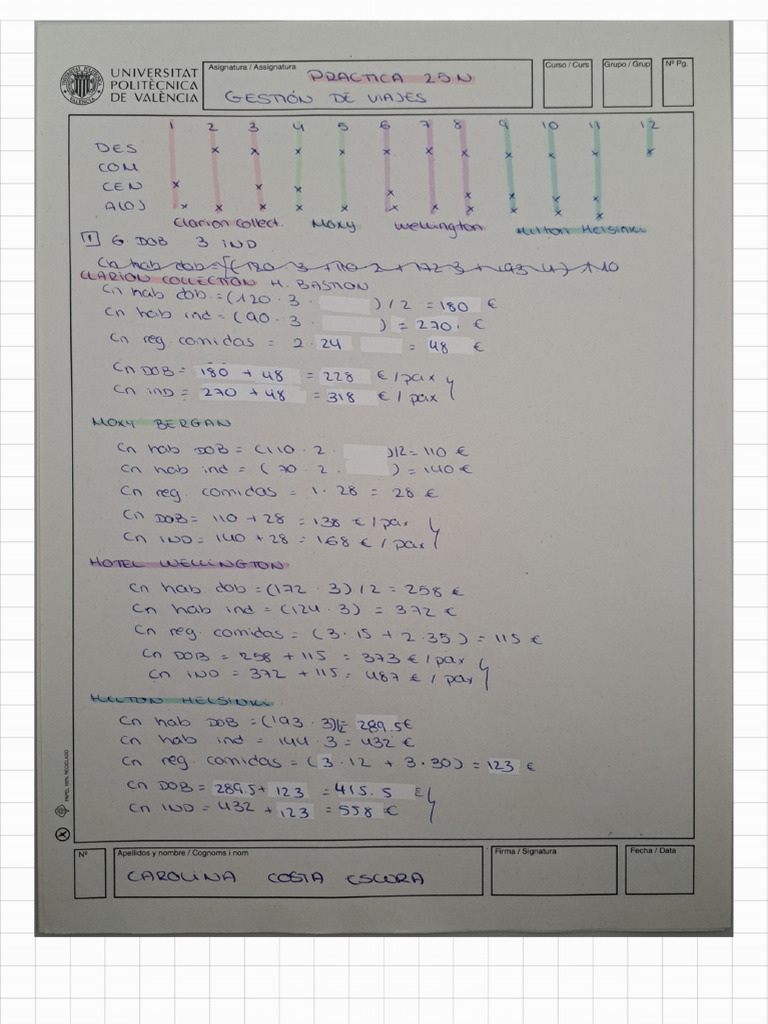 UNIVERSITAT
POLITÈCNICA
DE VALÈNCIA
Asignatura / Assignatura
PRACTICA 25N
GESTIÓN DE VIAJES
Curso / Curs
Grupo / Grup
Nº Pg.
1 2 3 4 5 6 7 8 9 10 11 12
DES x x x x x x x x x x x
COM
CEN x x x x x x x
ALOJ x x x x x x x x x x x
Clarion Collect. Moxy Wellington Hilton Helsinki
1 6 DOB 3 IND
Cn hab dob = [(120 · 3 + 110 · 2 + 172 · 3 + 193 · 4)
CLARION COLLECTION H. BASTION
Cn hab dob = (120 · 3 · ) / 2 = 180 €
Cn hab ind = (90 · 3 · ) = 270. €
Cn reg comidas = 2 · 24 = 48 €
Cn DOB = 180 + 48 = 228 € / pax
Cn IND = 270 + 48 = 318 € / pax
MOXY BERGAN
Cn hab DOB = (110 · 2 · )/2 = 110 €
Cn hab ind = (70 · 2 · ) = 140 €
Cn reg. comidas = 1 · 28 = 28 €
Cn DOB = 110 + 28 = 138 € / pax
Cn IND = 140 + 28 = 168 € / pax
HOTEL WELLINGTON
Cn hab dob = (172 · 3) / 2 = 258 €
Cn hab ind = (124 · 3) = 372 €
Cn reg. comidas = (3 · 15 + 2 · 35) = 115 €
Cn DOB = 258 + 115 = 373 € / pax
Cn IND = 372 + 115 = 487 € / pax
HILTON HELSINKI
Cn hab DOB = (193 · 3)/2 = 289.5 €
Cn hab ind = 144 · 3 = 432 €
Cn reg. comidas = (3 · 12 + 3 · 30) = 123 €
Cn DOB = 289.5 + 123 = 415.5 €
Cn IND = 432 + 123 = 558 €
PAPEL 100% RECICLADO
Nº
Apellidos y nombre / Cognoms i nom
CAROLINA COSTA ESCURA
Firma / Signatura
Fecha / Data